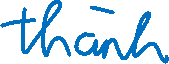 thành